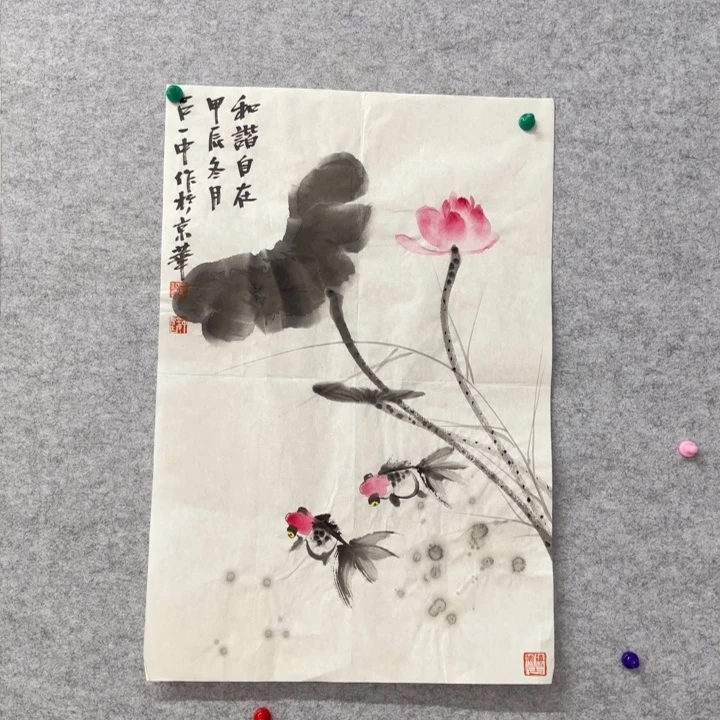 和諧自在
甲辰冬月
一中作於京華